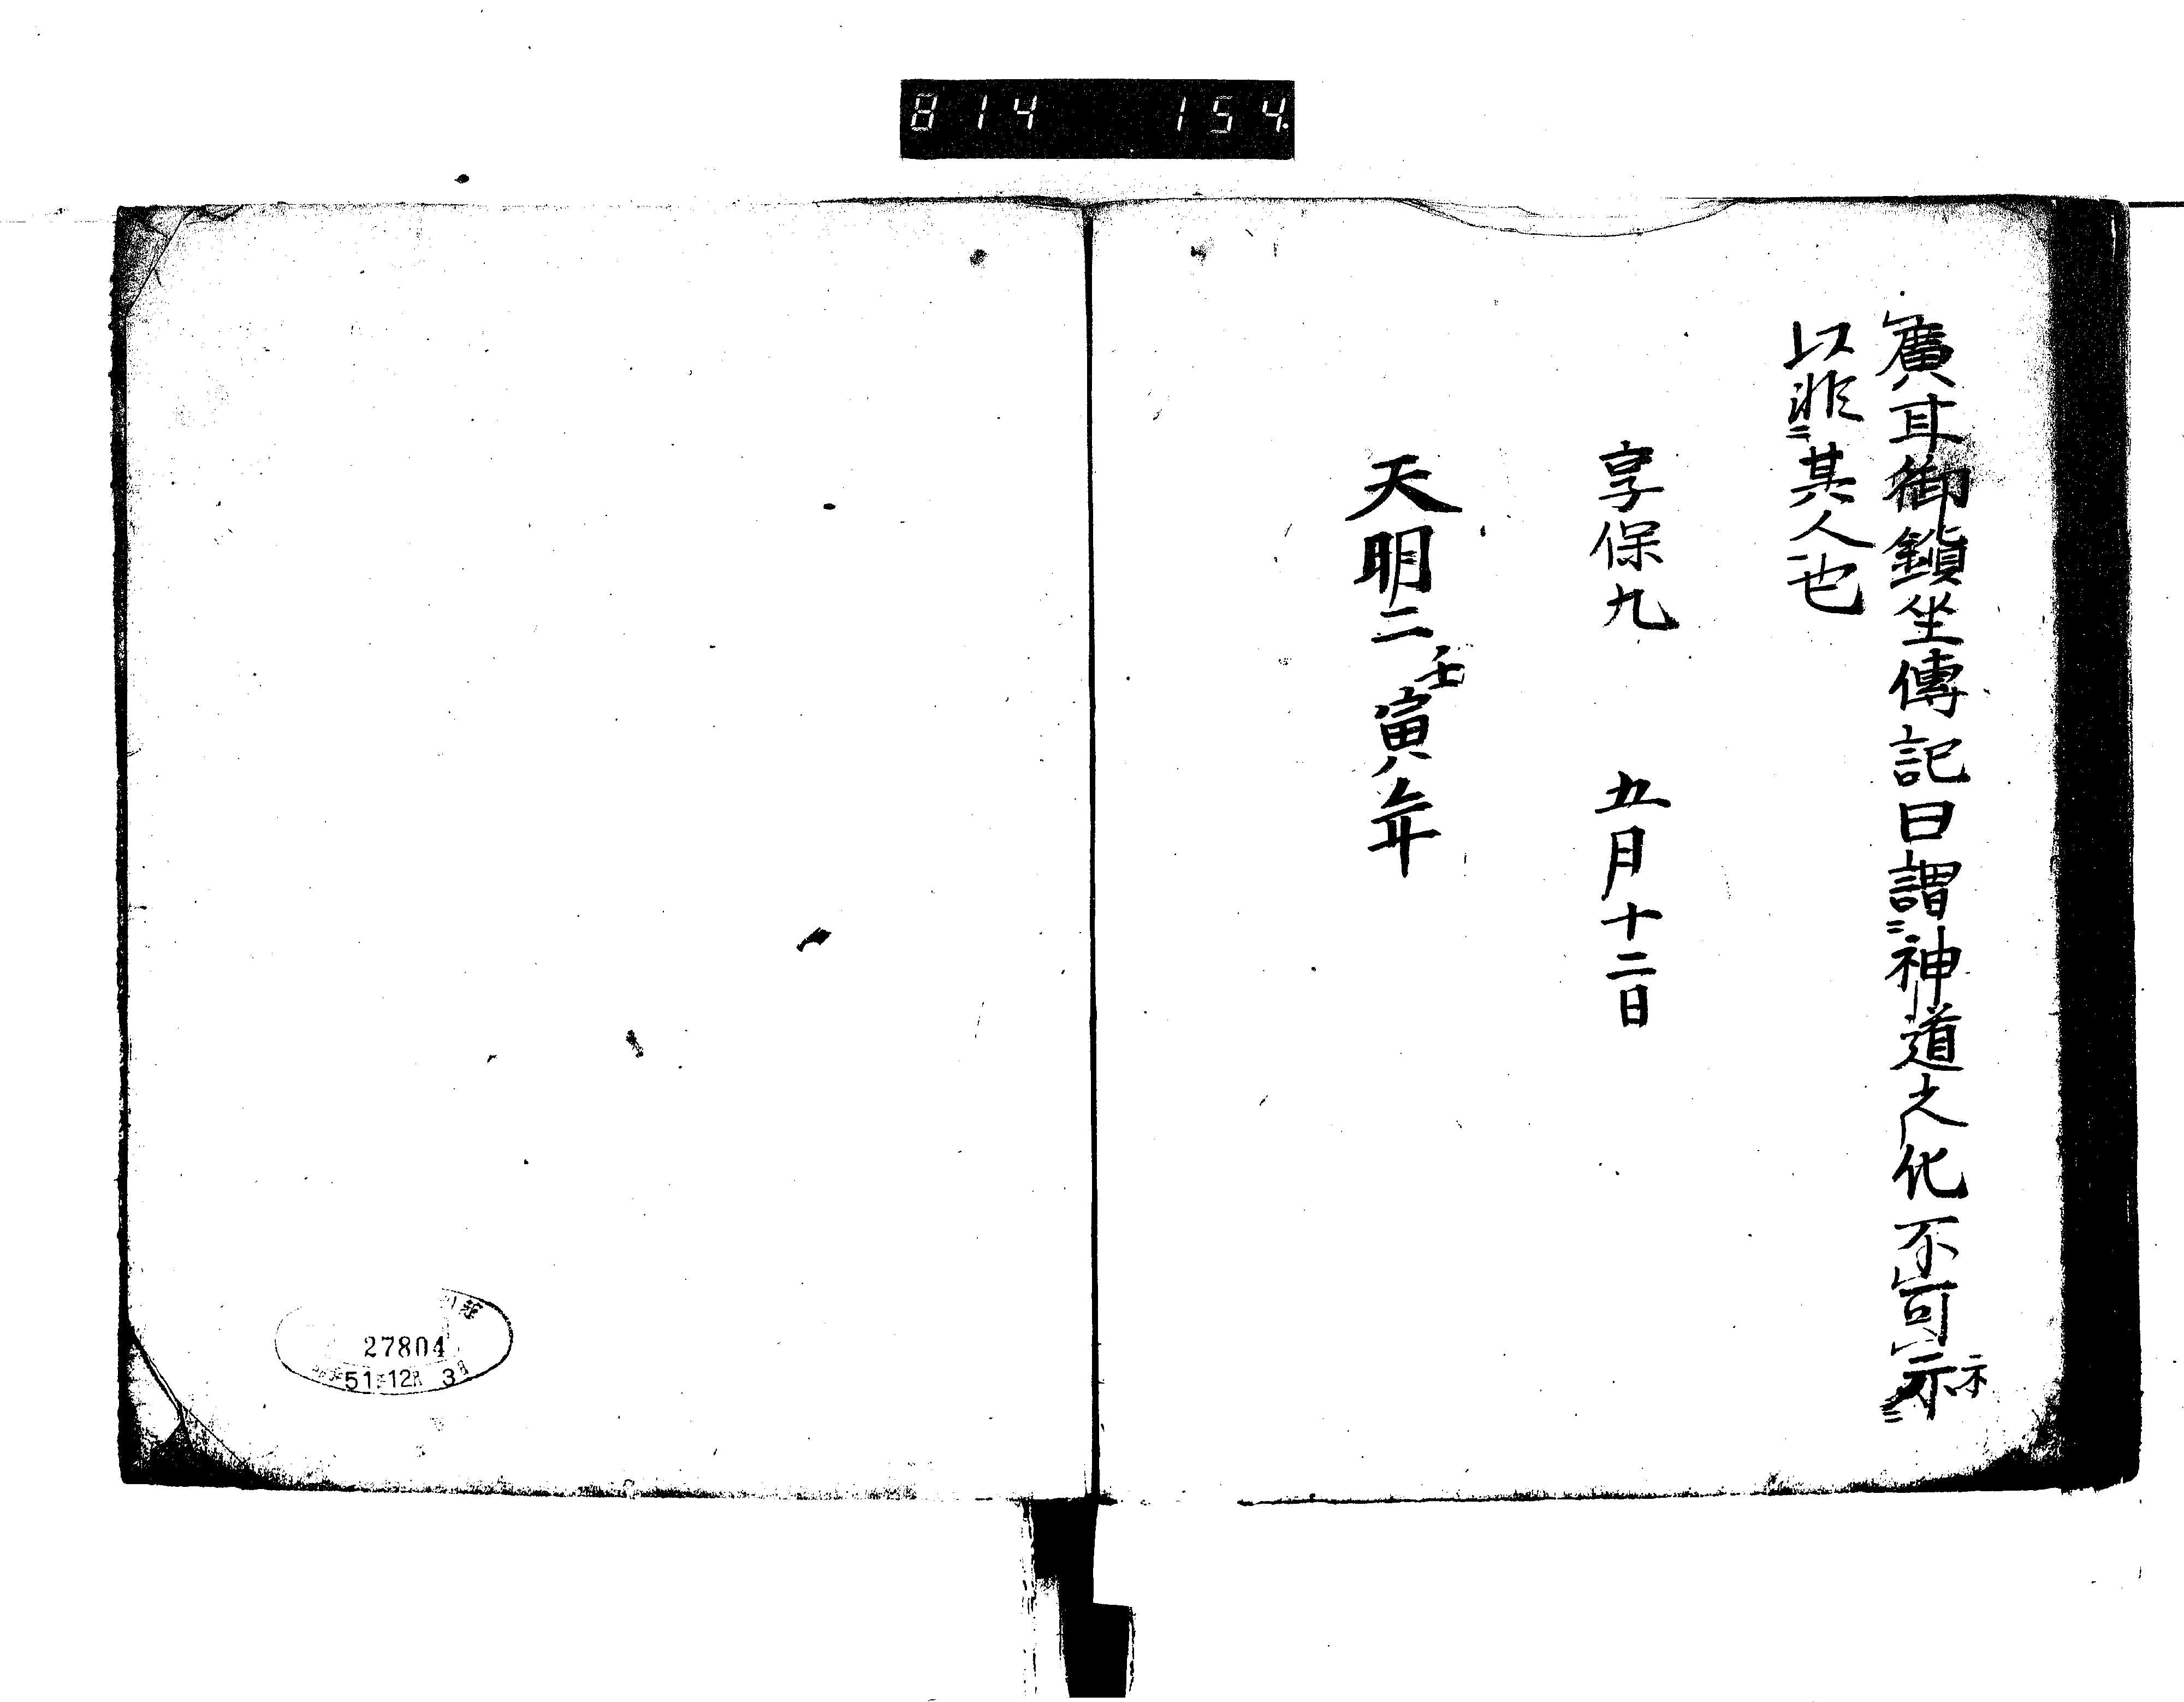 814 154
廣耳御鎮坐傳記曰謂神道之化不可示
以非其人也
享保九 五月十二日
天明二壬寅年
27804
51 12 3